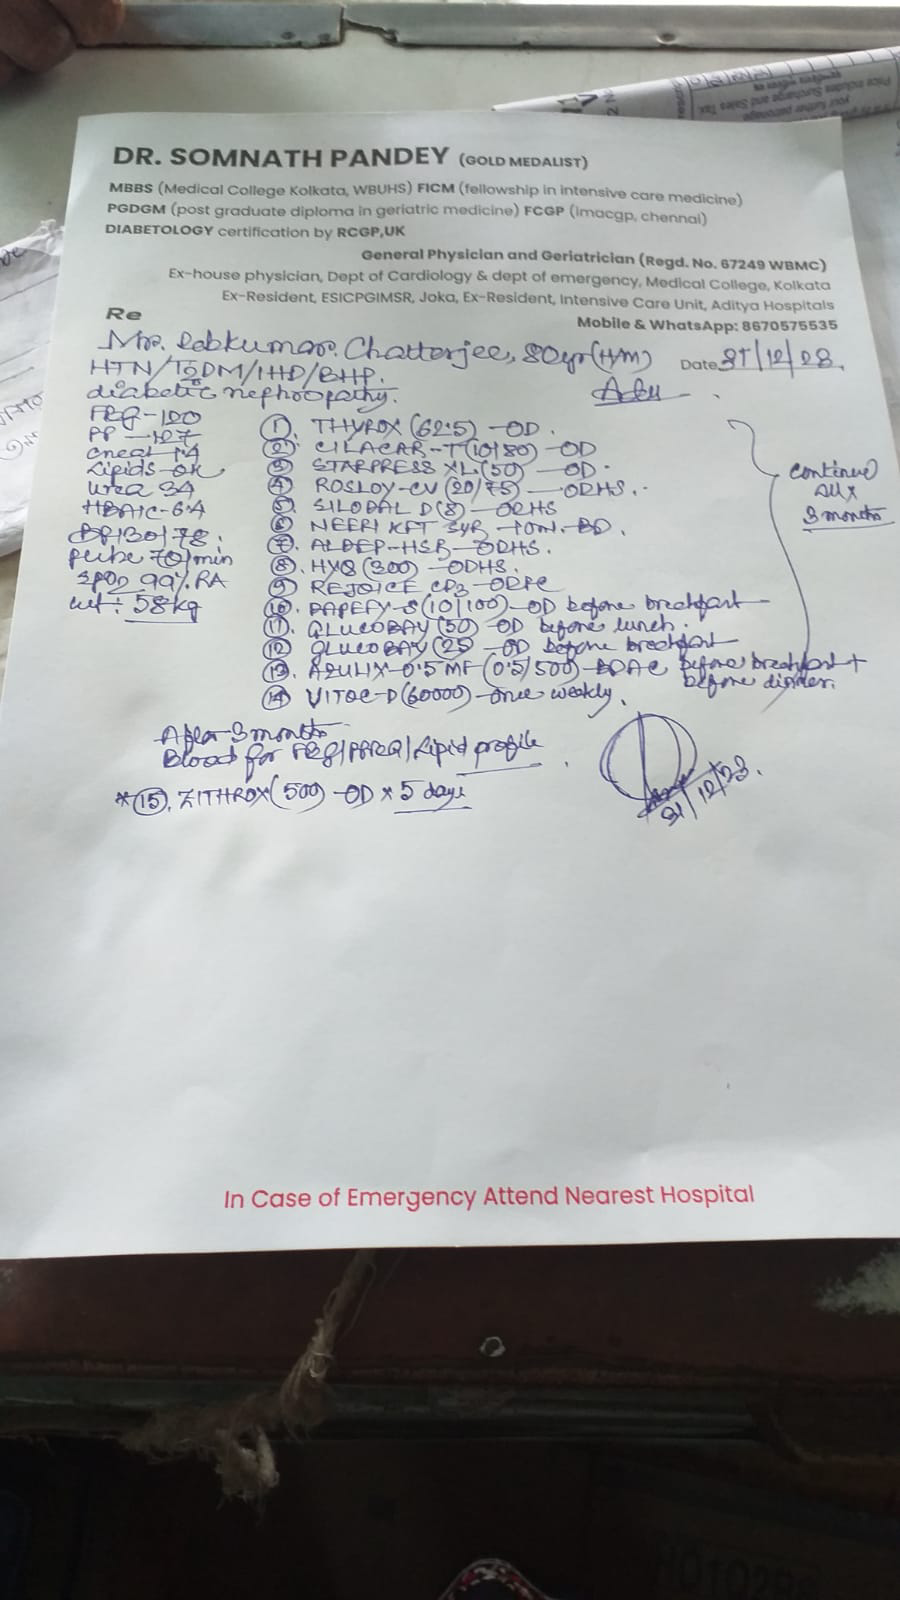 DR. SOMNATH PANDEY (GOLD MEDALIST)
MBBS (Medical College Kolkata, WBUHS) FICM (fellowship in intensive care medicine)
PGDGM (post graduate diploma in geriatric medicine) FCGP (imacgp, chennai)
DIABETOLOGY certification by RCGP,UK
General Physician and Geriatrician (Regd. No. 67249 WBMC)
Ex-house physician, Dept of Cardiology & dept of emergency, Medical College, Kolkata
Ex-Resident, ESICPGIMSR, Joka, Ex-Resident, Intensive Care Unit, Aditya Hospitals
Mobile & WhatsApp: 8670575535
Re
Mr. Debkumar Chatterjee, 80yr (H/M) Date 31/12/23
HTN/T2DM/IHD/BHP.
diabetic nephropathy.
Adv
FBG-100
PP-127
creat 1.4
Lipids-OK
Urea 34
HBA1C-6.4
BP 130/78
pulse 70/min
SPO2 99% RA
wt: 58kg
① THYROX (62.5) -OD.
② CILACAR-T (10/80) -OD
③ STARPRESS XL (50) -OD.
④ ROSLOY-CV (20/75) -ODHS.
⑤ SILODAL D (8) -ODHS
⑥ NEERI KFT SYR - BD.
⑦ ALDEP-HSR -ODHS.
⑧ HYQ (300) -ODHS.
⑨ REJOICE CD3 -ODPC
⑩ DAPEFY-S (10/100) -OD before breakfast
⑪ GLUCOBAY (50) -OD before lunch.
⑫ GLUCOBAY (25) -OD before breakfast
⑬ AZULIX-0.5 MF (0.5/500) -BDAC before breakfast + before dinner.
⑭ VITOC-D (60000) -once weekly.
continue
all x
3 months
After 3 months
Blood for FBG/PPBG/Lipid profile
* ⑮ ZITHROX (500) -OD x 5 days
31/12/23.
In Case of Emergency Attend Nearest Hospital